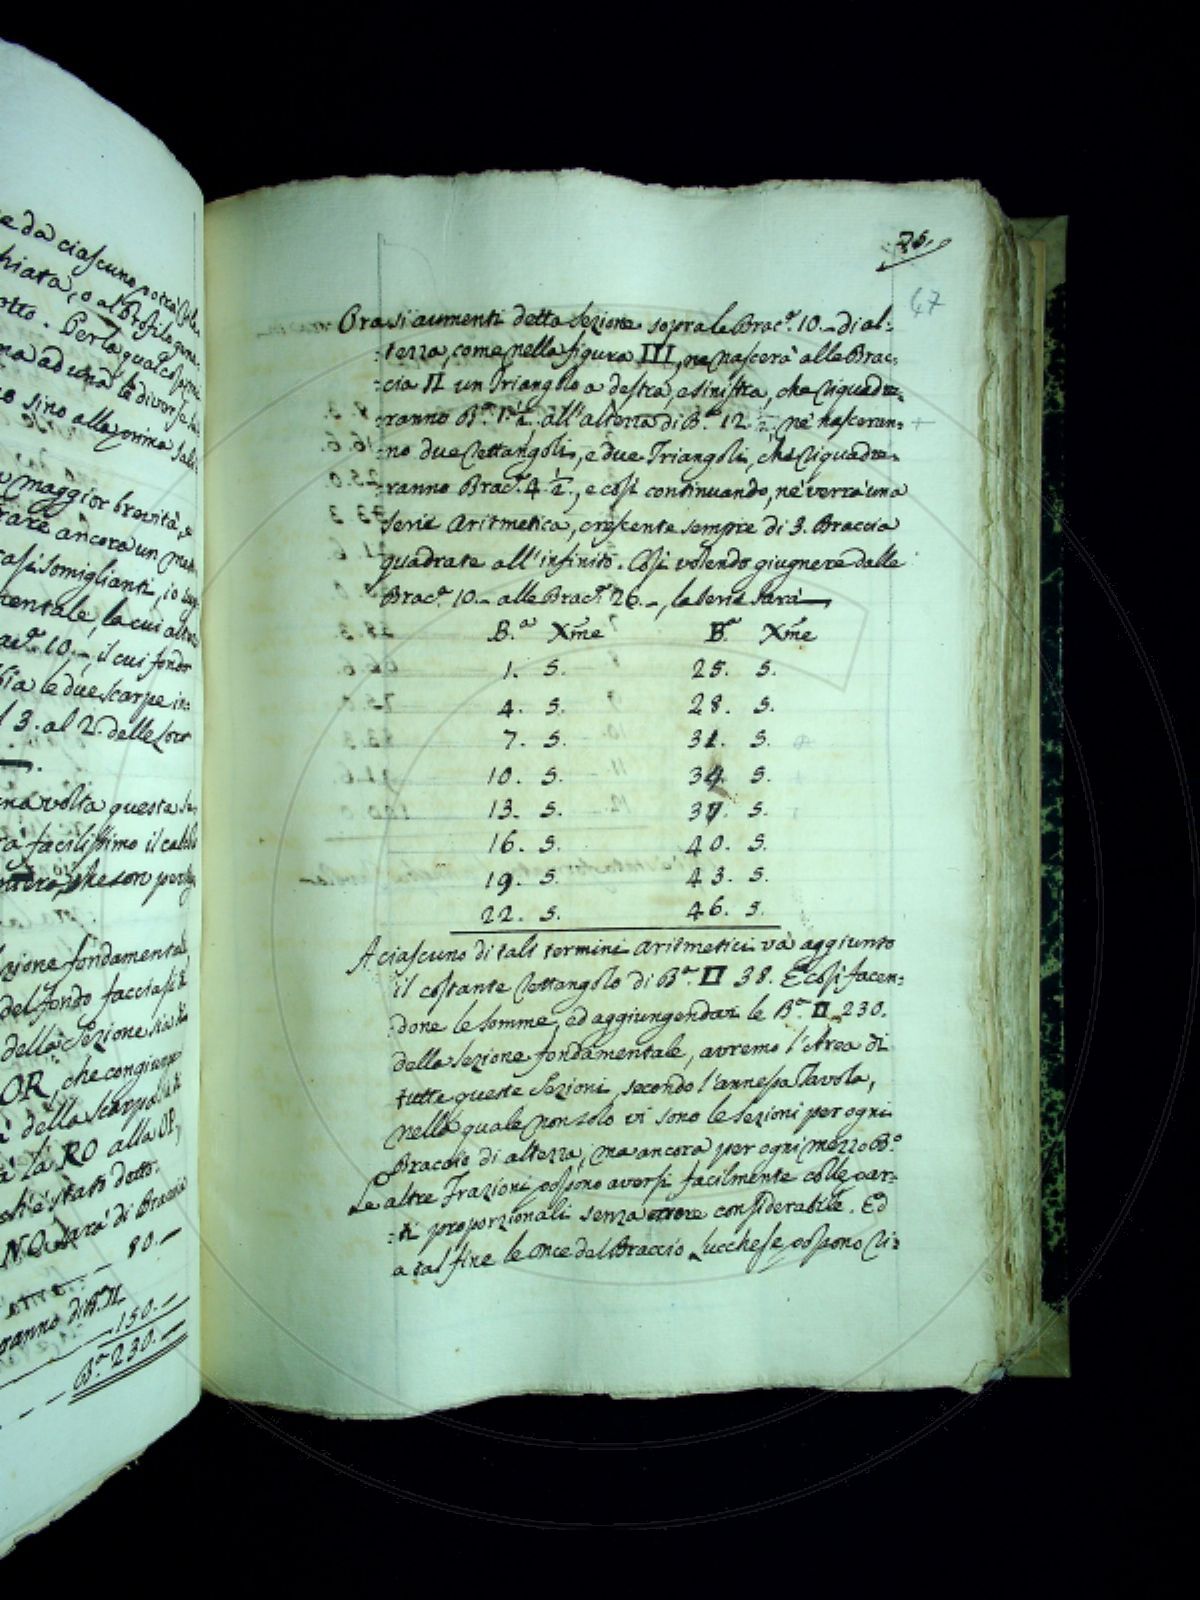 e da ciascuno potrà
hiata, o al Profilo gene-
otto. Per la qual
ma ad una le diverse
o sino alla prima
maggior brevità, e
rare ancora un
casi somiglianti, io
mentale, la cui
Brac.ª 10.–, il cui fondo
le due scarpe in:
3. al 2. delle loro
una volta questa
facilissimo il
che son
zione fondamentale
del fondo facciasi
della Sezione sia
OR, che congiunge
della scarpa
à la RO alla OP,
ch'è stato detto.
sarà di Braccia
80.–
ranno di B.ª
150.–
B.ª 230.–
75.
67
Ora si aumenti detta Sezione sopra le Brac.ª 10.– di al-
:tezza, come nella figura III, ne nascerà alle Brac:
:cia 11 un Triangolo a destra, e sinistra, che riquadre:
:ranno B.ª 1 1/2. all'altezza di B.ª 12 ne nasceran:
:no due rettangoli, e due Triangoli, che riquadre:
:ranno Brac.ª 4 1/2., e così continuando, ne verrà una
serie Aritmetica, crescente sempre di 3. Braccia
quadrate all'infinito. Così volendo giugnere dalle
Brac.ª 10.– alle Brac.ª 26.–, la serie sarà
B.ª Xme B.ª Xme
1. 5. 25. 5.
4. 5. 28. 5.
7. 5. 31. 5.
10. 5. 34. 5.
13. 5. 37. 5.
16. 5. 40. 5.
19. 5. 43. 5.
22. 5. 46. 5.
A ciascuno di tali termini aritmetici và aggiunto
il costante rettangolo di B.ª □ 38. E così facen:
:done le somme, ed aggiungendovi le B.ª □ 230.
della sezione fondamentale, avremo l'Area di
tutte queste Sezioni, secondo l'annessa Tavola,
nella quale non solo vi sono le sezioni per ogni
Braccio di altezza, ma ancora per ogni mezzo B.º
Le altre Frazioni possono aversi facilmente colle par:
:ti proporzionali senza errore considerabile. Ed
a tal fine le once del Braccio Lucchese possono ri: